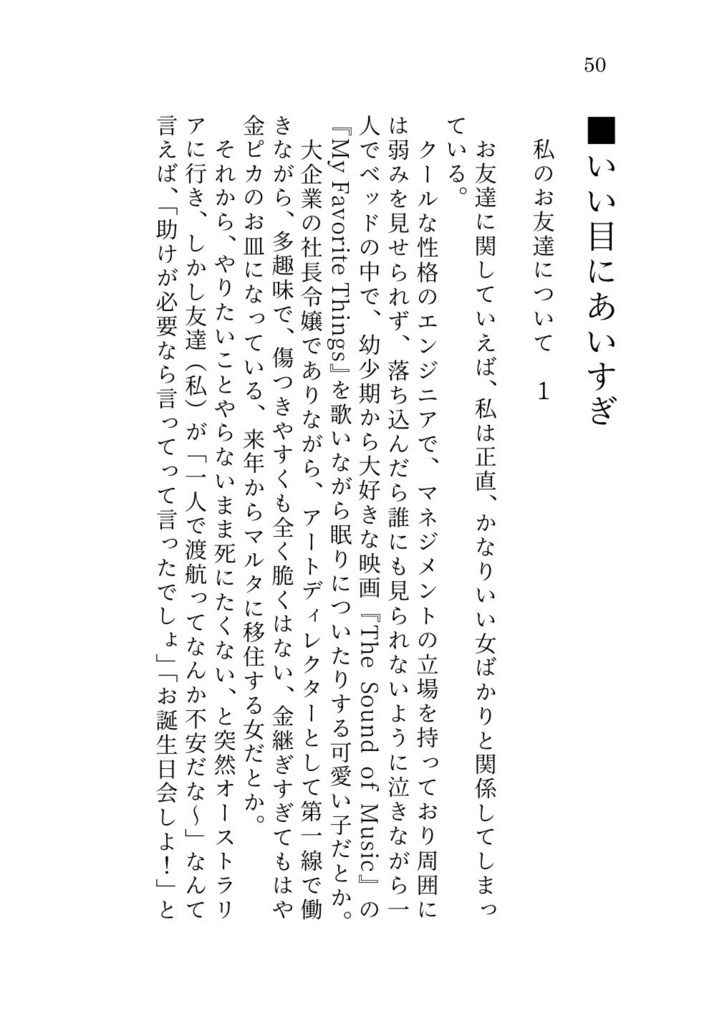 50
■いい目にあいすぎ
私のお友達について　1
お友達に関していえば、私は正直、かなりいい女ばかりと関係してしまっ
ている。
クールな性格のエンジニアで、マネジメントの立場を持っており周囲に
は弱みを見せられず、落ち込んだら誰にも見られないように泣きながら一
人でベッドの中で、幼少期から大好きな映画『The Sound of Music』の
『My Favorite Things』を歌いながら眠りについたりする可愛い子だとか。
大企業の社長令嬢でありながら、アートディレクターとして第一線で働
きながら、多趣味で、傷つきやすくも全く脆くはない、金継ぎすぎてもはや
金ピカのお皿になっている、来年からマルタに移住する女だとか。
それから、やりたいことやらないまま死にたくない、と突然オーストラリ
アに行き、しかし友達（私）が「一人で渡航ってなんか不安だな～」なんて
言えば、「助けが必要なら言ってって言ったでしょ」「お誕生日会しよ！」と